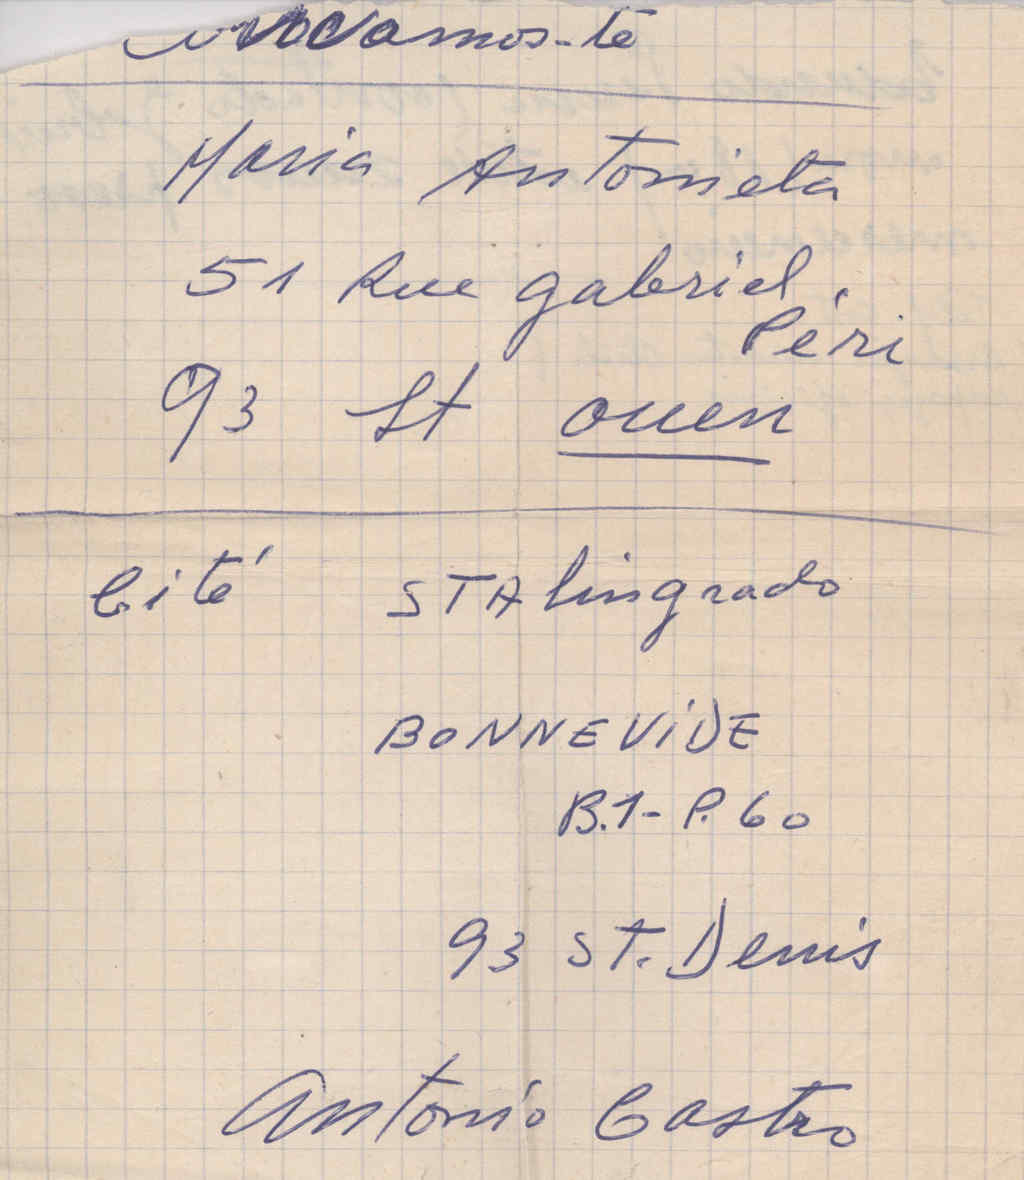 Maria Antonieta
51 Rue gabriel
Péri
93 St ouen
Cité STAlingrado
BONNEVIDE
B.1 - P. 60
93 ST. Denis
Antonio Castro